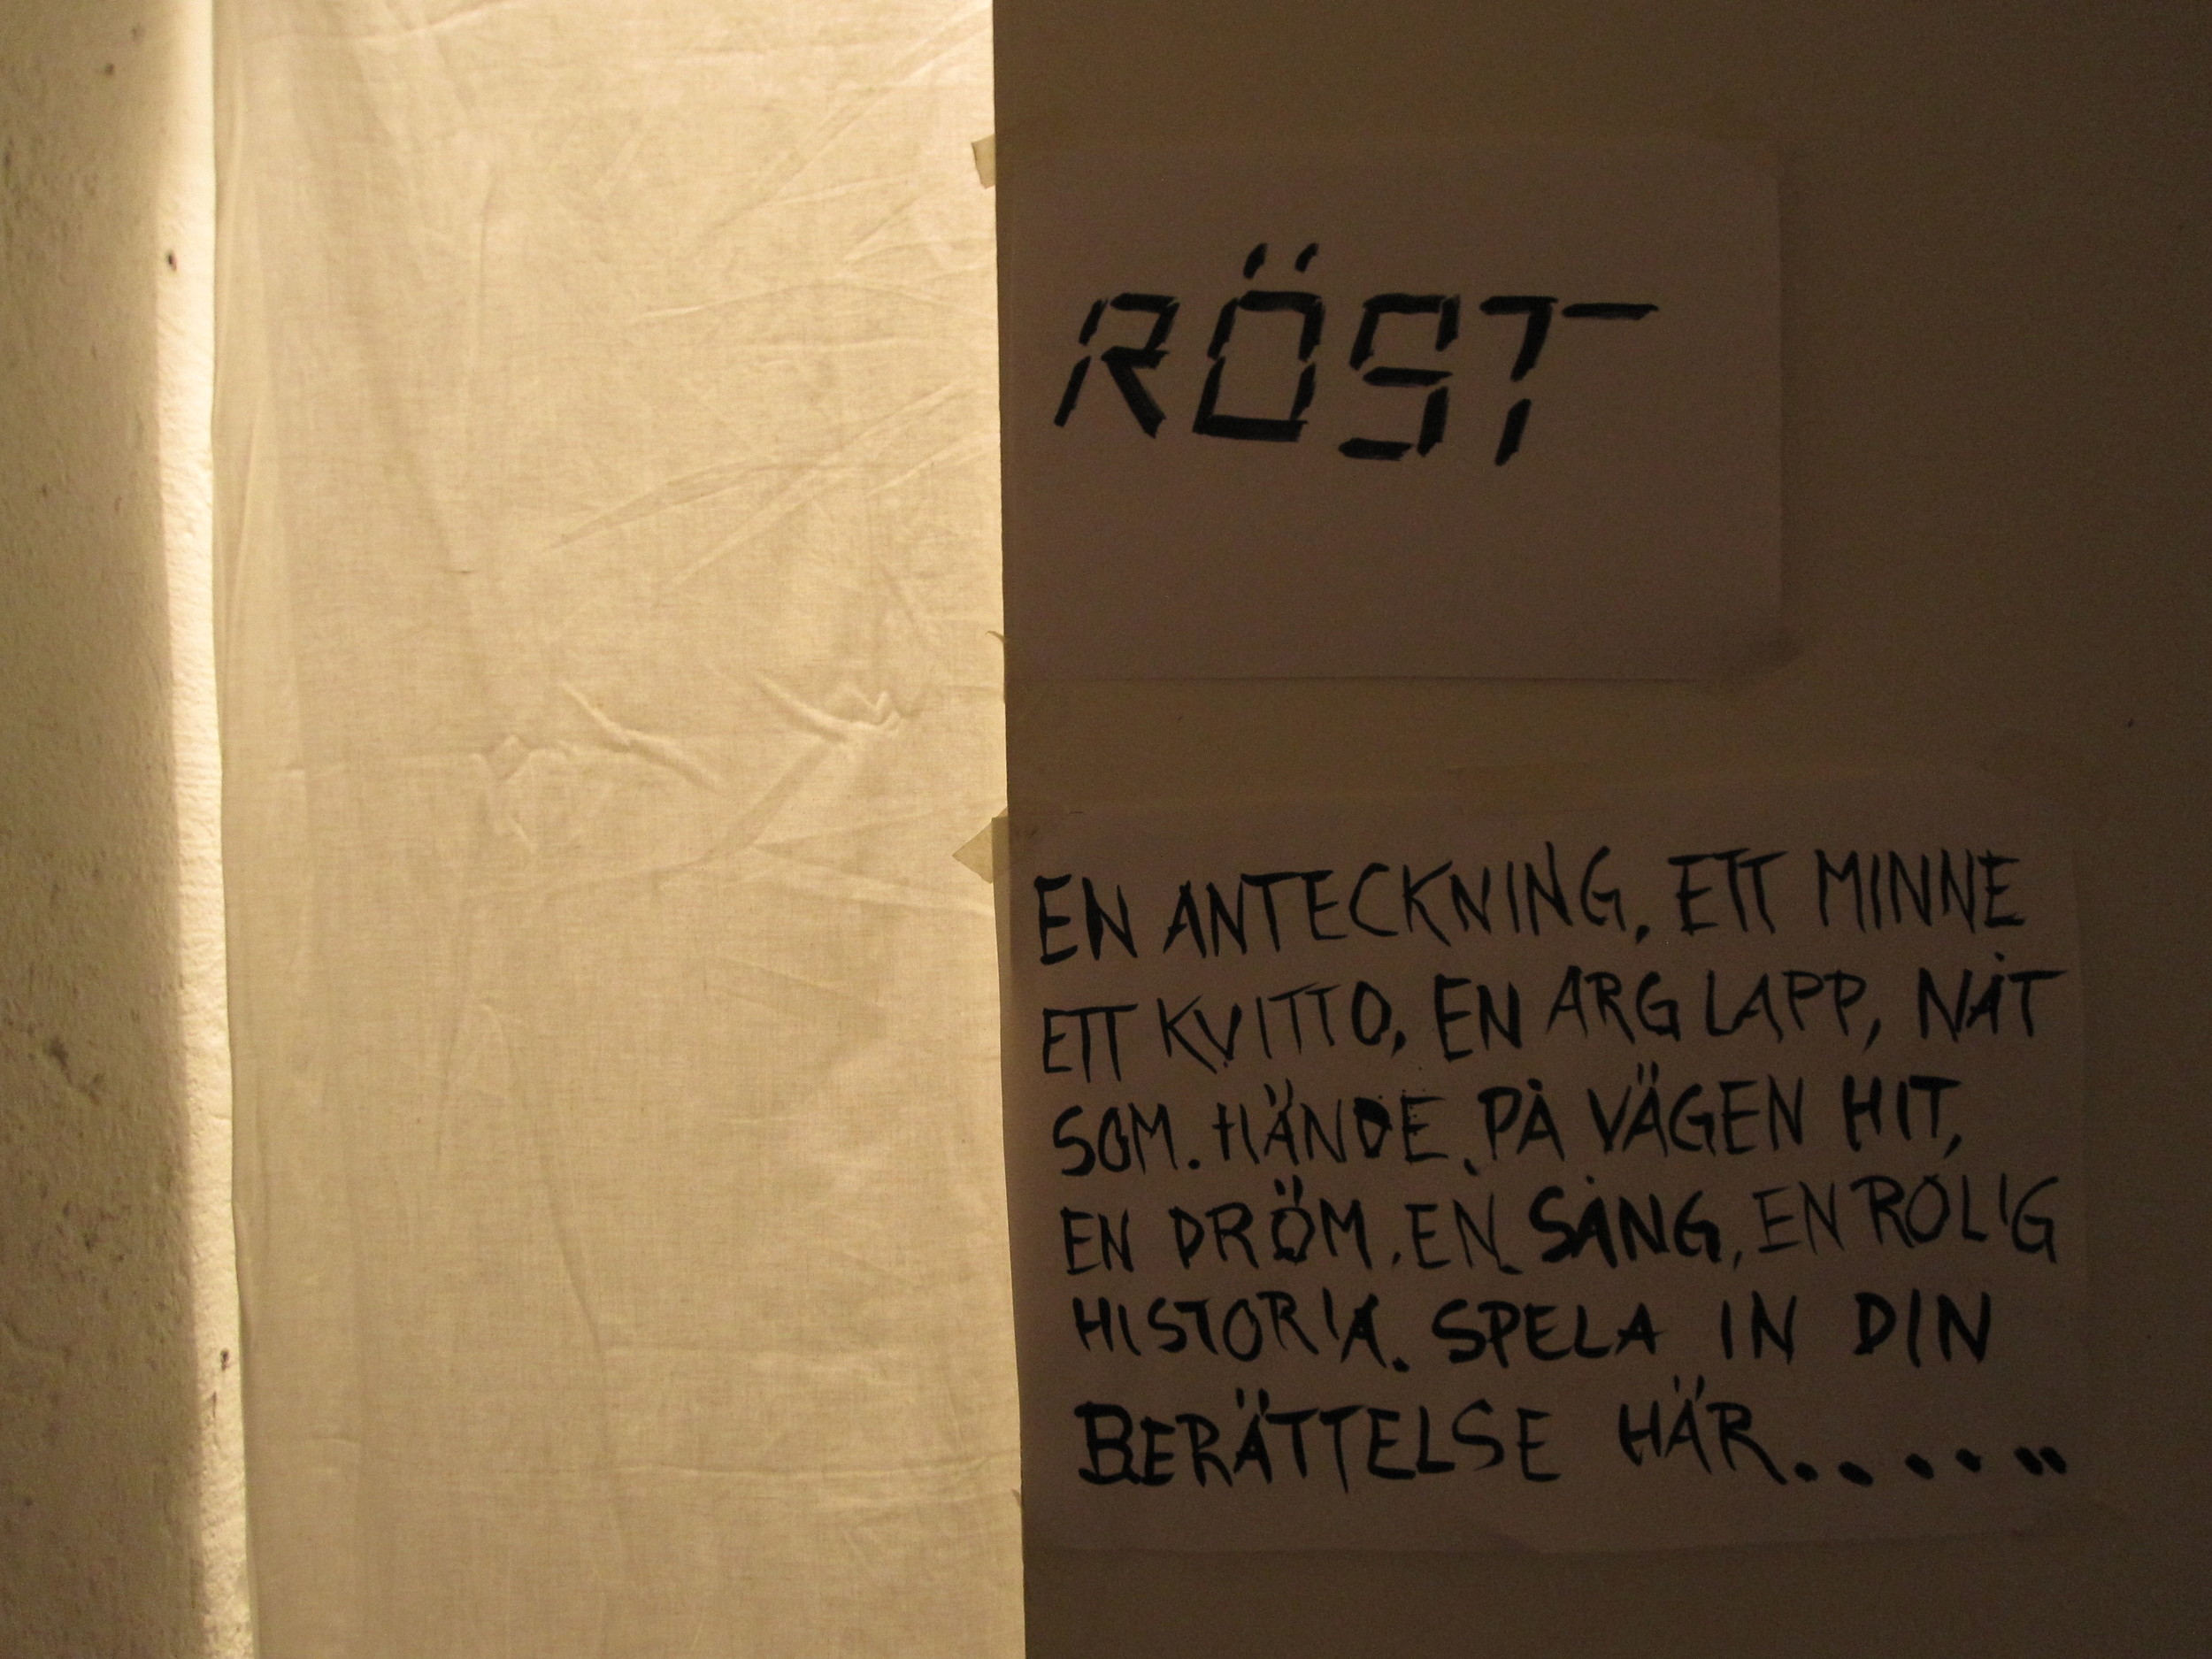 RÖST
EN ANTECKNING, ETT MINNE
ETT KVITTO, EN ARG LAPP, NÅT
SOM. HÄNDE, PÅ VÄGEN HIT,
EN DRÖM, EN SÅNG, EN ROLIG
HISTORIA. SPELA IN DIN
BERÄTTELSE HÄR......